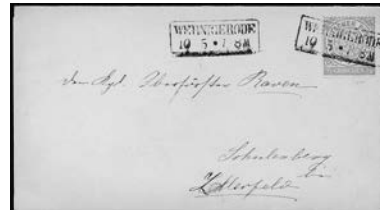 WERNIGERODE
10 5 * 7. 8M
WERNIGERODE
10 5 * 7. 8M
dem Kgl. Oberförster Raven
Schulenberg
bei
Zellerfeld